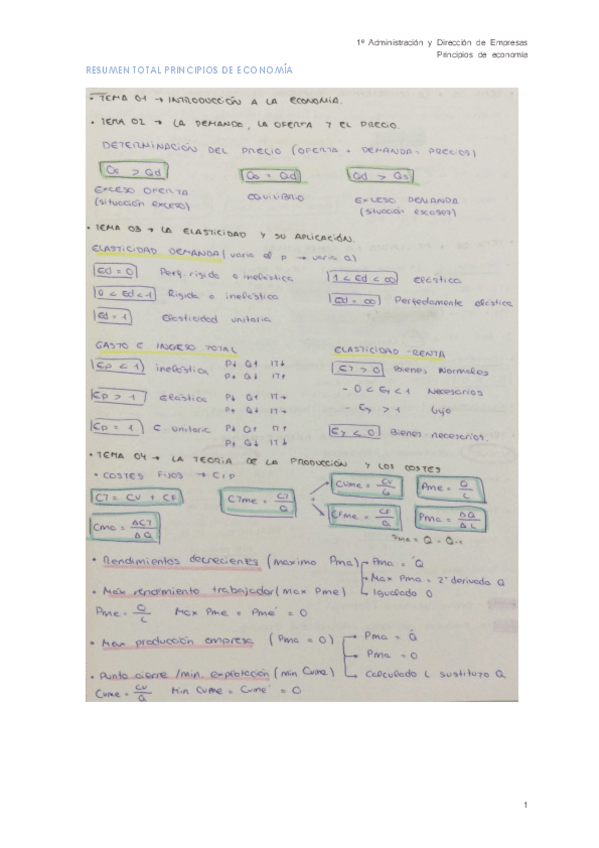 1º Administración y Dirección de Empresas
Principios de economía
RESUMEN TOTAL PRINCIPIOS DE ECONOMÍA
• TEMA 01 → INTRODUCCIÓN A LA ECONOMIA.
• TEMA 02 → LA DEMANDA, LA OFERTA Y EL PRECIO.
DETERMINACIÓN DEL PRECIO (OFERTA + DEMANDA = PRECIOS)
Qs > Qd Qs = Qd Qd > Qs
EXCESO OFERTA EQUILIBRIO EXCESO DEMANDA
(situación exceso) (situación escasez)
• TEMA 03 → LA ELASTICIDAD Y SU APLICACIÓN.
ELASTICIDAD DEMANDA (varia el p → varia Q)
Ed = 0 Perf. rigida o inelástica 1 < Ed < ∞ elástica
0 < Ed < 1 Rigida o inelástica Ed = ∞ Perfectamente elástica
Ed = 1 Elasticidad unitaria
GASTO E INGRESO TOTAL ELASTICIDAD - RENTA
Ep < 1 inelástica P↓ Q↑ IT↓ Ey > 0 Bienes Normales
P↑ Q↓ IT↑ - 0 < Ey < 1 Necesarios
Ep > 1 elástica P↓ Q↑
P↑ Q↓ - Ey > 1 lujo
Ep = 1 E unitaria P↓ Q↑
P↑ Q↓ Ey < 0 Bienes necesarios.
• TEMA 04 → LA TEORIA DE LA PRODUCCIÓN Y LOS COSTES
• COSTES FIJOS →
CT = CV + CF CTme = CT/Q CVme = CV/Q Pme = Q/L
Cma = ΔCT/ΔQ CFme = CF/Q Pma = ΔQ/ΔL
• Rendimientos decrecientes (maximo Pma) → Pma = Q́
→ Max Pma = 2ª derivada Q
→ Igualado 0
• Máx rendimiento trabajador (max Pme)
Pme = Q/L Max Pme = Pme' = 0
• Max producción empresa (Pma = 0) → Pma = Q́
→ Pma = 0
→ Calculado L sustituyo Q
• Punto cierre / min. explotación (min CVme)
CVme = CV/Q Min CVme = CVme' = 0
1